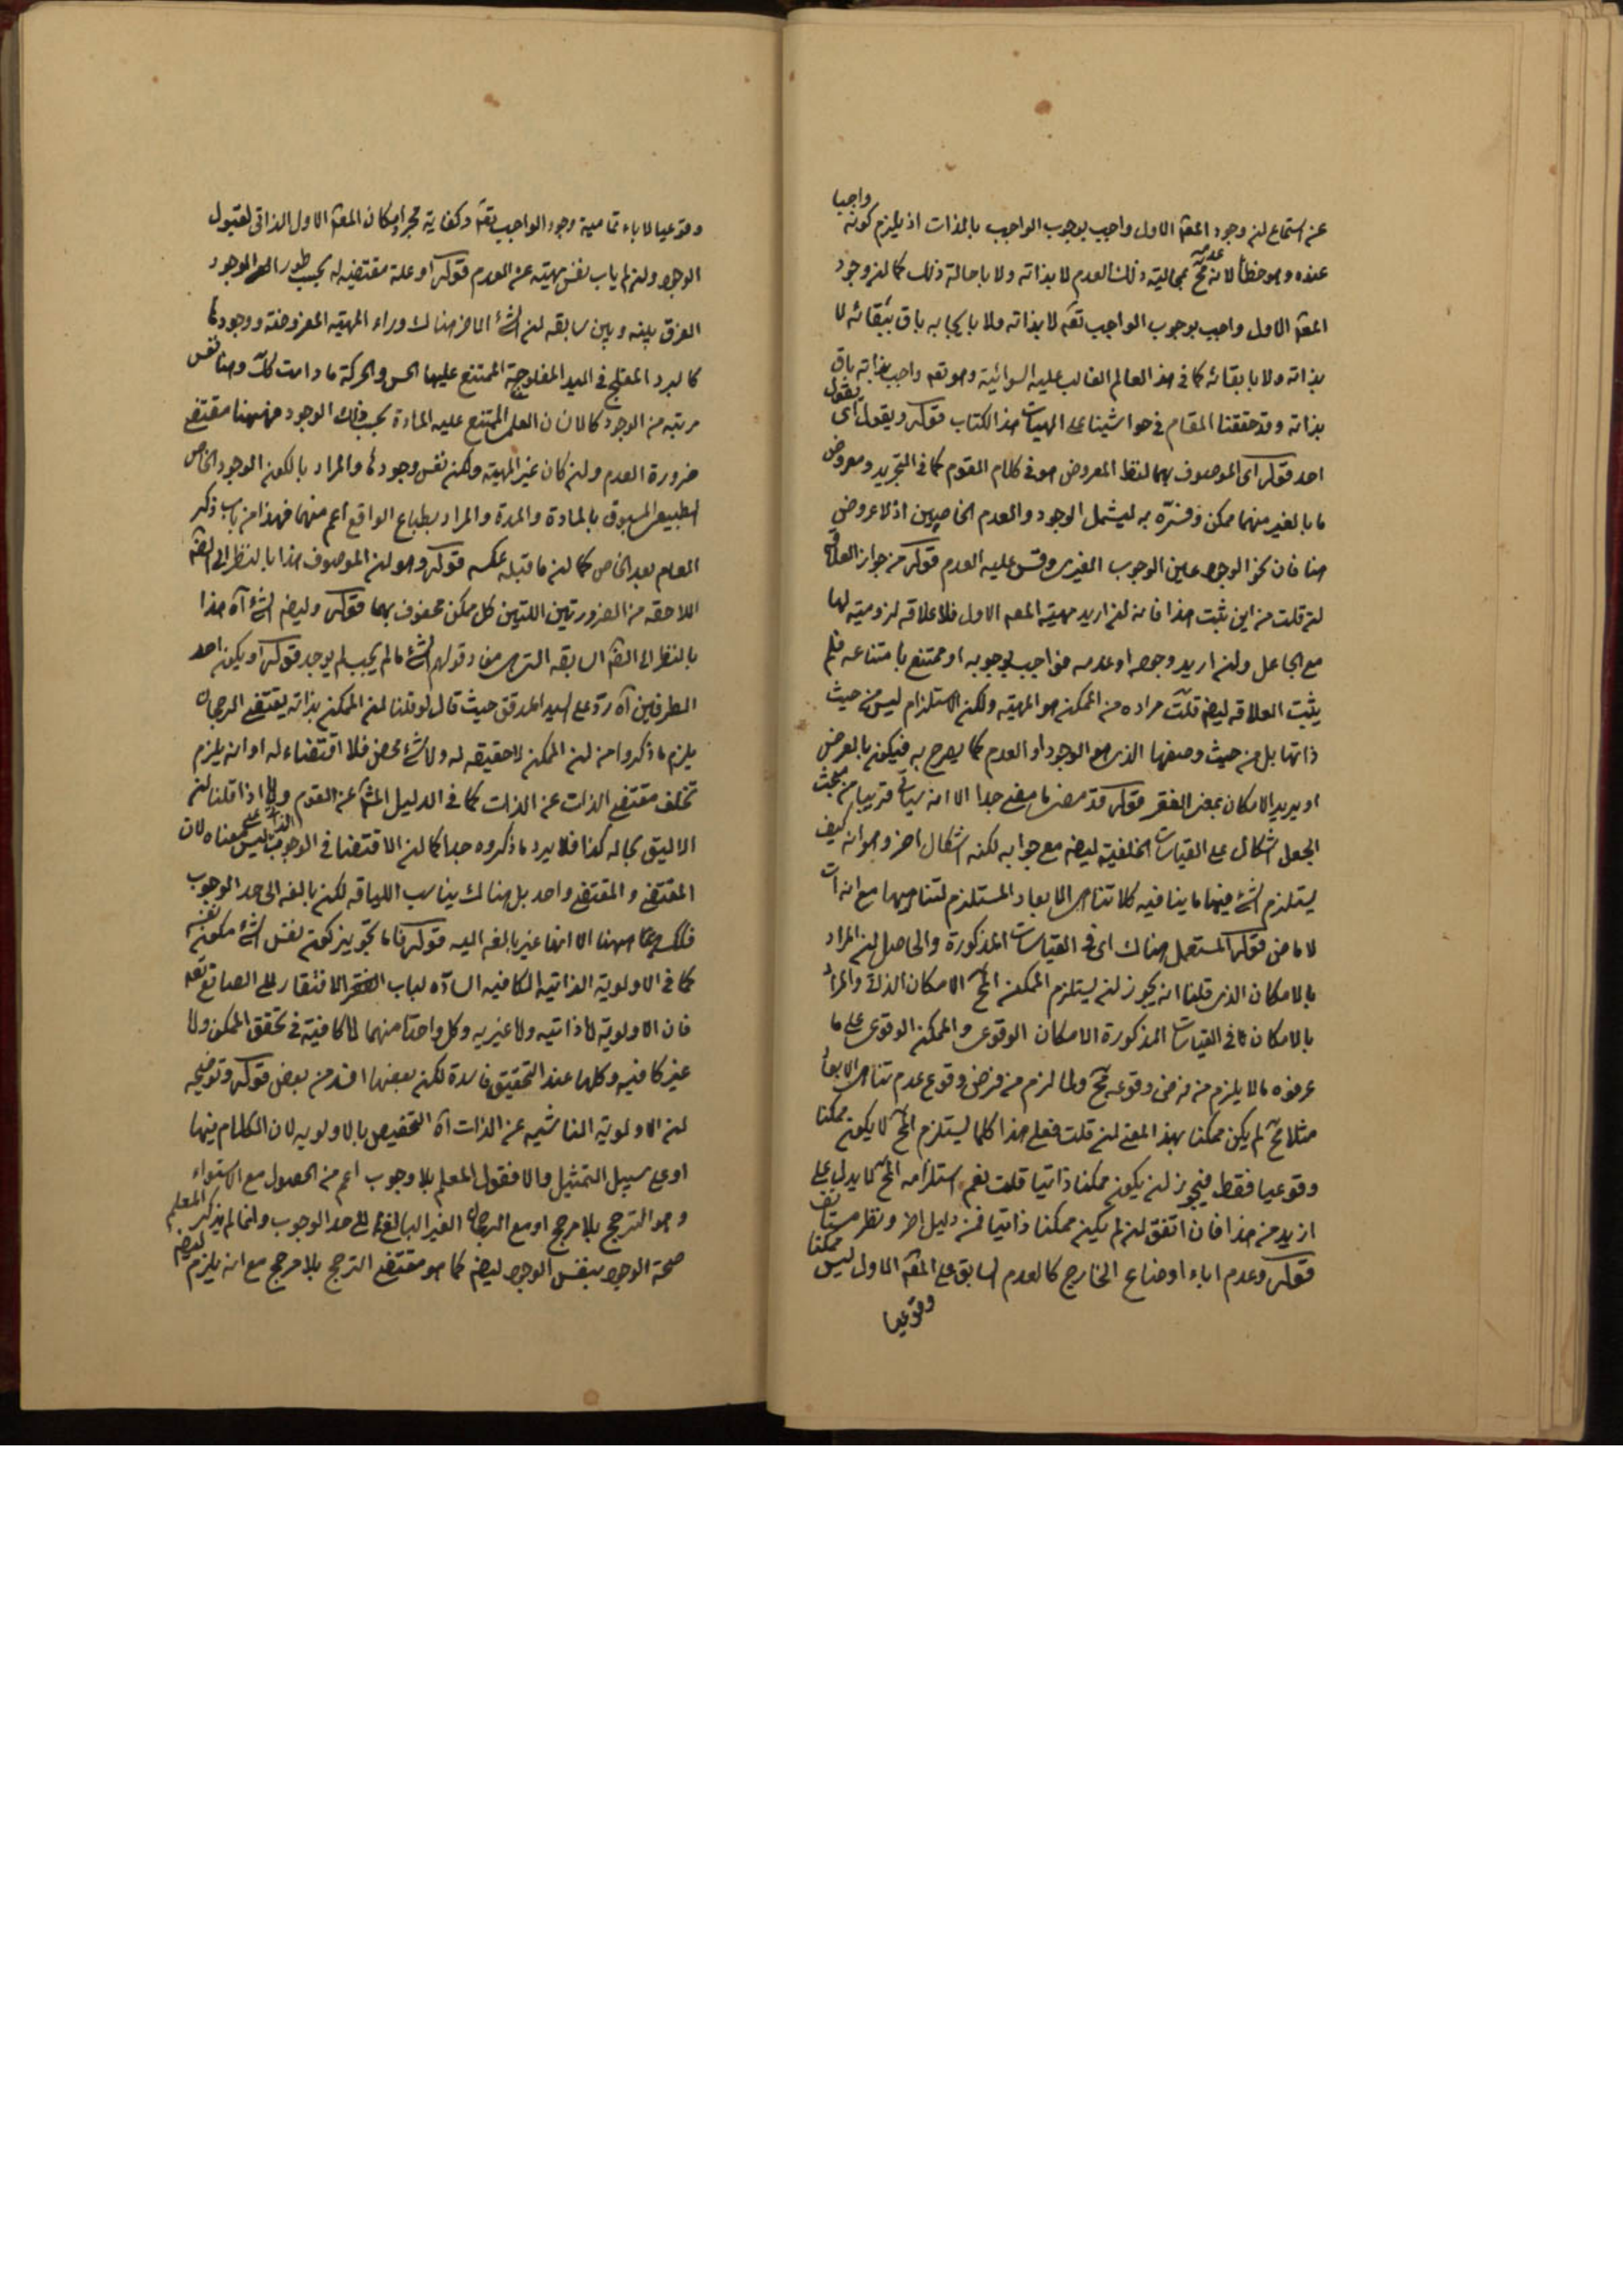 عن استماع لن وجود المعه الاول واجب بوجوب الواجب بالذات اذ يلزم كونه واجبا
عنده وهو خطأ لانه عدمه مح بمحالية ذلك العدم لا بذاته ولا باحالة ذلك كما لن وجود
المعه الاول واجب بوجوب الواجب تعه لا بذاته ولا بايجابه باق ببقائه لا
بذاته ولا بابقائه كما في هذا العالم الغالب عليه السوائية وهو تعه واجب بذاته باق
بذاته وقد حققنا المقام في حواشينا على الهيات هذا الكتاب قوله ويقول اى يقول
احد قوله اى الموصوف بهما لفظ المعروض هو في كلام القوم كما في التجريد ومعروض
ما بالغير منهما ممكن وفسره به ليشمل الوجود والعدم الخاصين اذ لا عروض
هنا فان نحو الوجود عين الوجوب الغيرى وقس عليه العدم قوله من جواز العلاقه
لن قلت من اين ثبت هذا فانه لن اريد مهية المعه الاول فلا علاقه لزومية لها
مع الجاعل ولن اريد وجوده او عدمه فواجب بوجوبه او ممتنع بامتناعه فلم
يثبت العلاقه ليضه قلت مراده من الممكن هو المهية ولكن الاستلزام ليس من حيث
ذاتها بل من حيث وصفها الذى هو الوجود او العدم كما يصرح به فيكون بالعرض
او يريد الامكان بمعنى الفقر قوله قد مضى ما مضى جدا الا انه سيأتى قريبا من مبحث
الجعل اشكال على القياسات الخلفية ليضه مع جوابه لكنه اشكال اخر وهو انه كيف
يستلزم الشئ فيها ما ينافيه كلا تناهى الابعاد المستلزم لتناهيها مع انه ات
لا ماض قوله المستعمل هناك اى في القياسات المذكورة والحاصل لن المراد
بالامكان الذى قلنا انه يجوز لن يستلزم الممكن المح الامكان الذاتى والمراد
بالامكان كما في القياسات المذكورة الامكان الوقوعى والممكن الوقوعى على ما
عرفوه ما لا يلزم من فرض وقوعه مح ولما لزم من فرض وقوع عدم تناهى الابعاد
مثلا مح لم يكن ممكنا بهذا المعنى لن قلت فعلى هذا كلما يستلزم المح لا يكون ممكنا
وقوعيا فقط فيجوز لن يكون ممكنا ذاتيا قلت نعم استلزامه المح لا يدل على
ازيد من هذا فان اتفق لن لم يكن ممكنا ذاتيا فمن دليل اخر ونظر مستانف
قوله وعدم اباء اوضاع الخارج كالعدم السابق على المعه الاول ليس ممكنا
وقوعيا
وقوعيا لاباء تمامية وجود الواجب تعه وكفاية مجرد امكان المعه الاول الذاتى لقبول
الوجود ولن لم ياب نفس مهيته عن العدم قوله او علة مقتضيه له بحسب طور الوجود
الفرق بينه وبين سابقه لن الشئ الاخر هناك وراء المهيه المفروضة ووجودها
كالبرد المفلج في اليد المفلوجة الممتنع عليها الحس والحركة ما دامت كك وهنا نفس
مرتبه من الوجود كالانسان العقلى الممتنع عليه المادة بحسب ذلك الوجود فههنا مقتضى
ضرورة العدم ولن كان غير المهية ولكن نفس وجودها والمراد بالكون الوجود الخاص
الطبيعى المسبوق بالمادة والمدة والمراد بطباع الواقع اعم منهما فهذا من باب ذكر
العام بعد الخاص كما لن ما قبله عكسه قوله وهو لن الموصوف هذا بالنظر الى الضه
اللاحقه من الضرورتين اللتين كل ممكن محفوف بهما قوله وليضه الشئ آه هذا
بالنظر الى الضه السابقه التى هى مفاد قولهم الشئ ما لم يجب لم يوجد قوله او يكون احد
الطرفين آه رد على السيد المدقق حيث قال لو قلنا لن الممكن بذاته يقتضى الرجحان
يلزم ما ذكروا من لن الممكن لا حقيقه له ولا شئ محض فلا اقتضاء له او انه يلزم
تخلف مقتضى الذات عن الذات كما في الدليل المشه عن القوم ولا اذا قلنا لن
الاليق بحاله كذا فلا يرد ما ذكروه جدا كما لن الاقتضا في الوجوب الذاتى ليس على معناه لان
المقتضى والمقتضى واحد بل هناك يناسب اللياقه لكن بالغه الى حد الوجوب
فكك ههنا الا انها غير بالغه اليه قوله فاما تجويز كون نفس الشئ مكون نفسه
كما في الاولوية الذاتيه الكافيه السادة لباب الافتقار الى الصانع تعه
فان الاولوية اما ذاتيه واما غيريه وكل واحد منهما اما كافية في تحقق الممكن واما
غير كافيه وكلها عند التحقيق فاسدة لكن بعضها افسد من بعض قوله وتوضيحه
لن الاولوية الناشيه عن الذات آه التخصيص بالاولويه لان الكلام فيها
او على سبيل التمثيل والا فقول المعلم بلا وجوب اعم من الحصول مع الاستواء
وهو الترجح بلا مرجح او مع الرجحان الغير البالغ الى حد الوجوب ولما لم يذكر المعلم
صحة الوجود بنفس الوجود ليضه كما هو مقتضى الترجح بلا مرجح مع انه يلزم ليضه